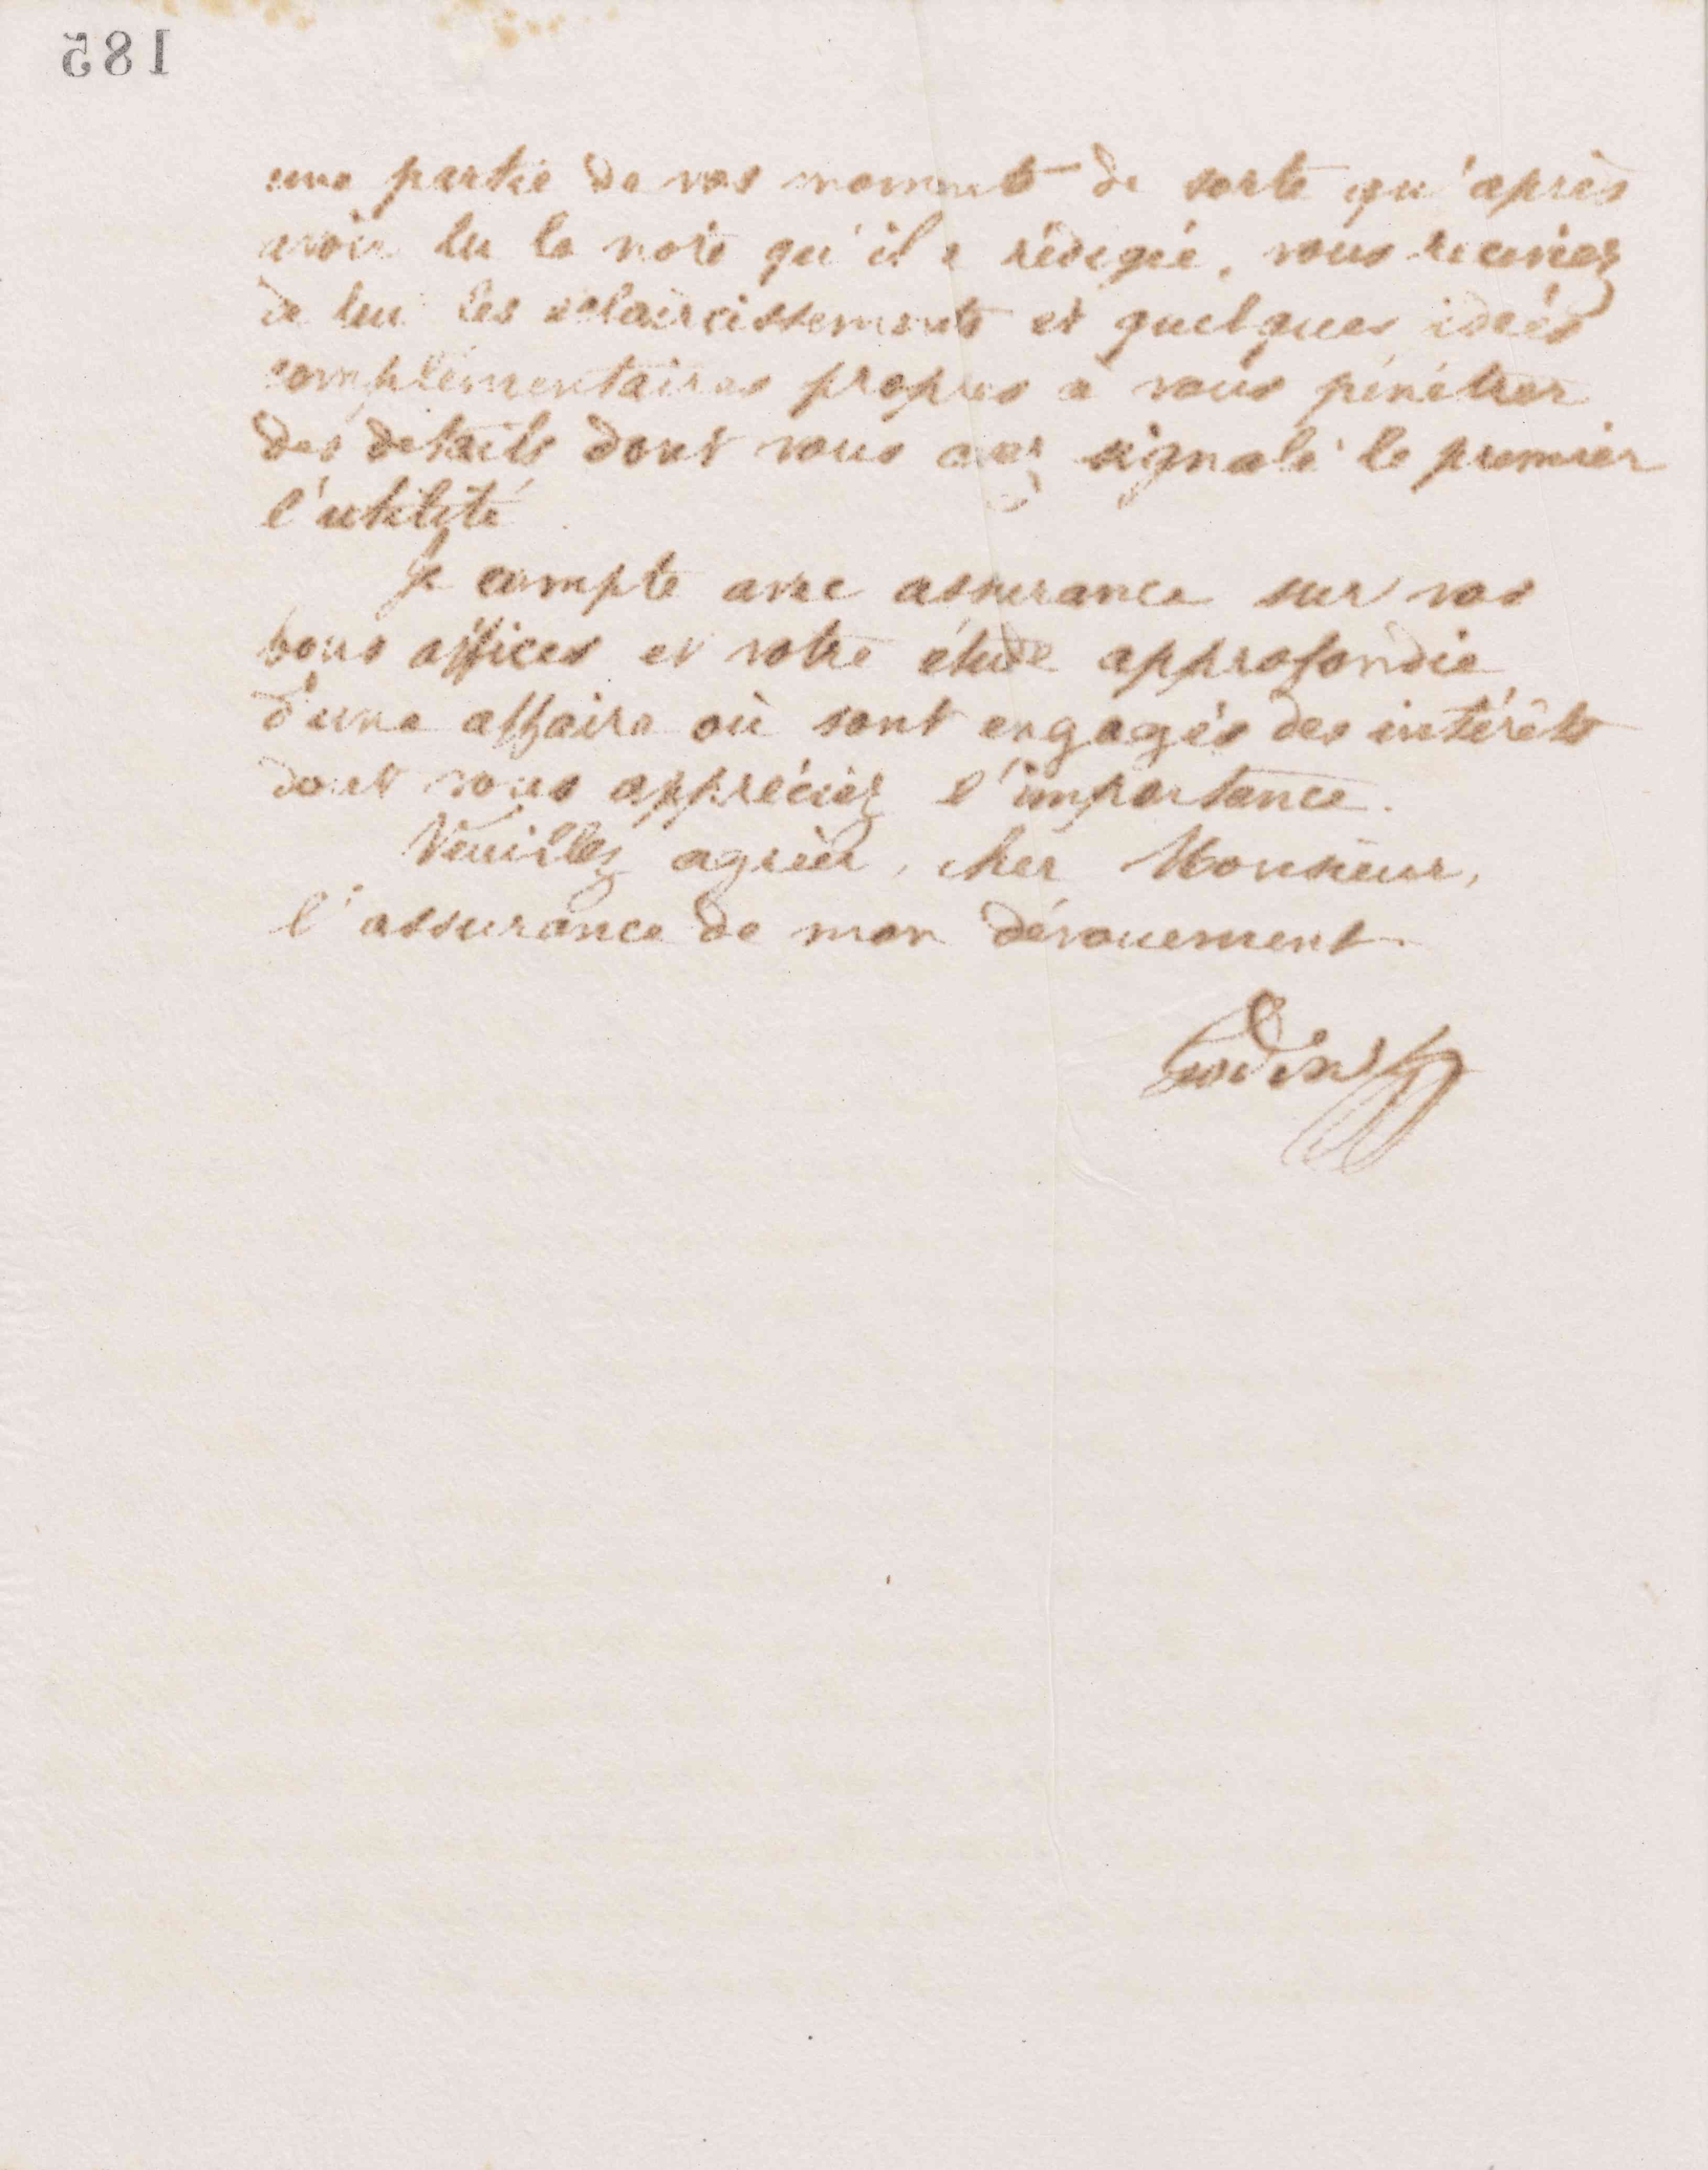 185
une partie de vos moments de sorte qu'après
avoir lu la note qu'il a rédigée, vous receviez
de lui les éclaircissements et quelques idées
complémentaires propres à vous pénétrer
des détails dont vous avez signalé le premier
l'utilité.
Je compte avec assurance sur vos
bons offices et votre étude approfondie
d'une affaire où sont engagés des intérêts
dont vous appréciez l'importance.
Veuillez agréer, cher Monsieur,
l'assurance de mon dévouement.
Godin